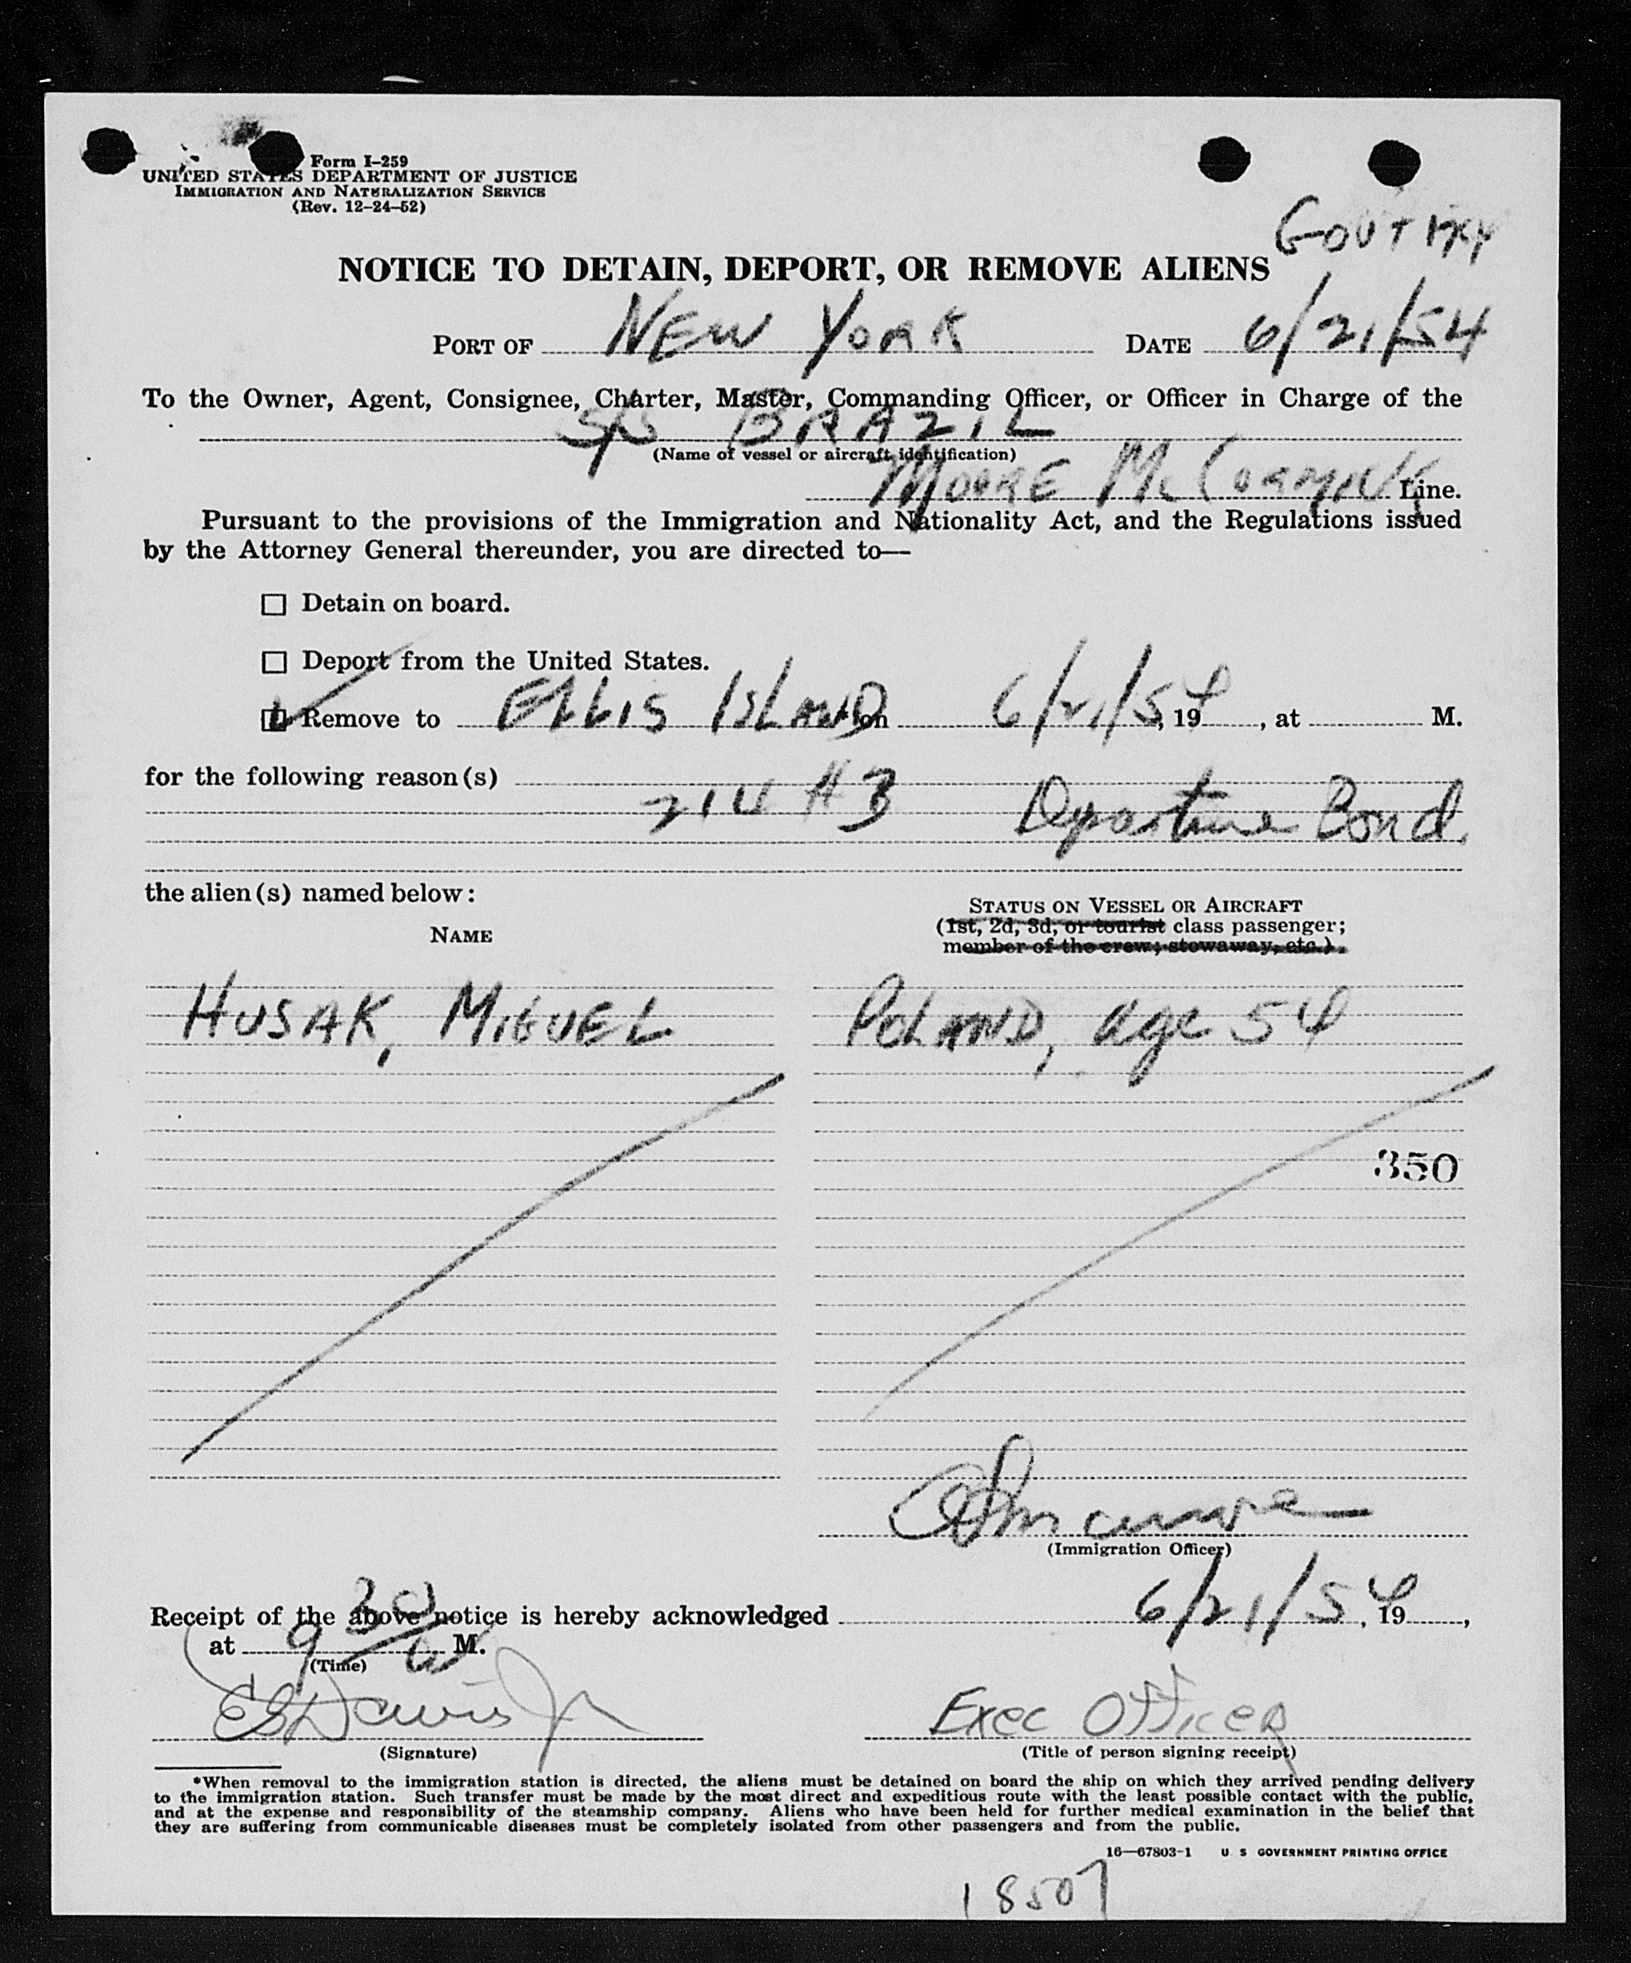 Form I-259
UNITED STATES DEPARTMENT OF JUSTICE
IMMIGRATION AND NATURALIZATION SERVICE
(Rev. 12-24-52)
NOTICE TO DETAIN, DEPORT, OR REMOVE ALIENS
PORT OF NEW YORK DATE 6/21/54
To the Owner, Agent, Consignee, Charter, Master, Commanding Officer, or Officer in Charge of the
S/S BRAZIL
(Name of vessel or aircraft identification)
MOORE McCORMICK Line.
Pursuant to the provisions of the Immigration and Nationality Act, and the Regulations issued
by the Attorney General thereunder, you are directed to—
Detain on board.
Deport from the United States.
Remove to ELLIS ISLAND *on 6/21/54, 19, at M.
for the following reason(s)
214 # 3 Departure Bond.
the alien(s) named below:
STATUS ON VESSEL OR AIRCRAFT
(1st, 2d, 3d, or tourist class passenger;
NAME
member of the crew; stowaway, etc.)
HUSAK, MIGUEL POLAND, age 54
350
(Immigration Officer)
Receipt of the above notice is hereby acknowledged 6/21/54, 19,
at 9 30 M.
(Time)
ES Davis Jr Exec OFFicer
(Signature) (Title of person signing receipt)
*When removal to the immigration station is directed, the aliens must be detained on board the ship on which they arrived pending delivery
to the immigration station. Such transfer must be made by the most direct and expeditious route with the least possible contact with the public,
and at the expense and responsibility of the steamship company. Aliens who have been held for further medical examination in the belief that
they are suffering from communicable diseases must be completely isolated from other passengers and from the public.
16—67803-1 U S GOVERNMENT PRINTING OFFICE
18507